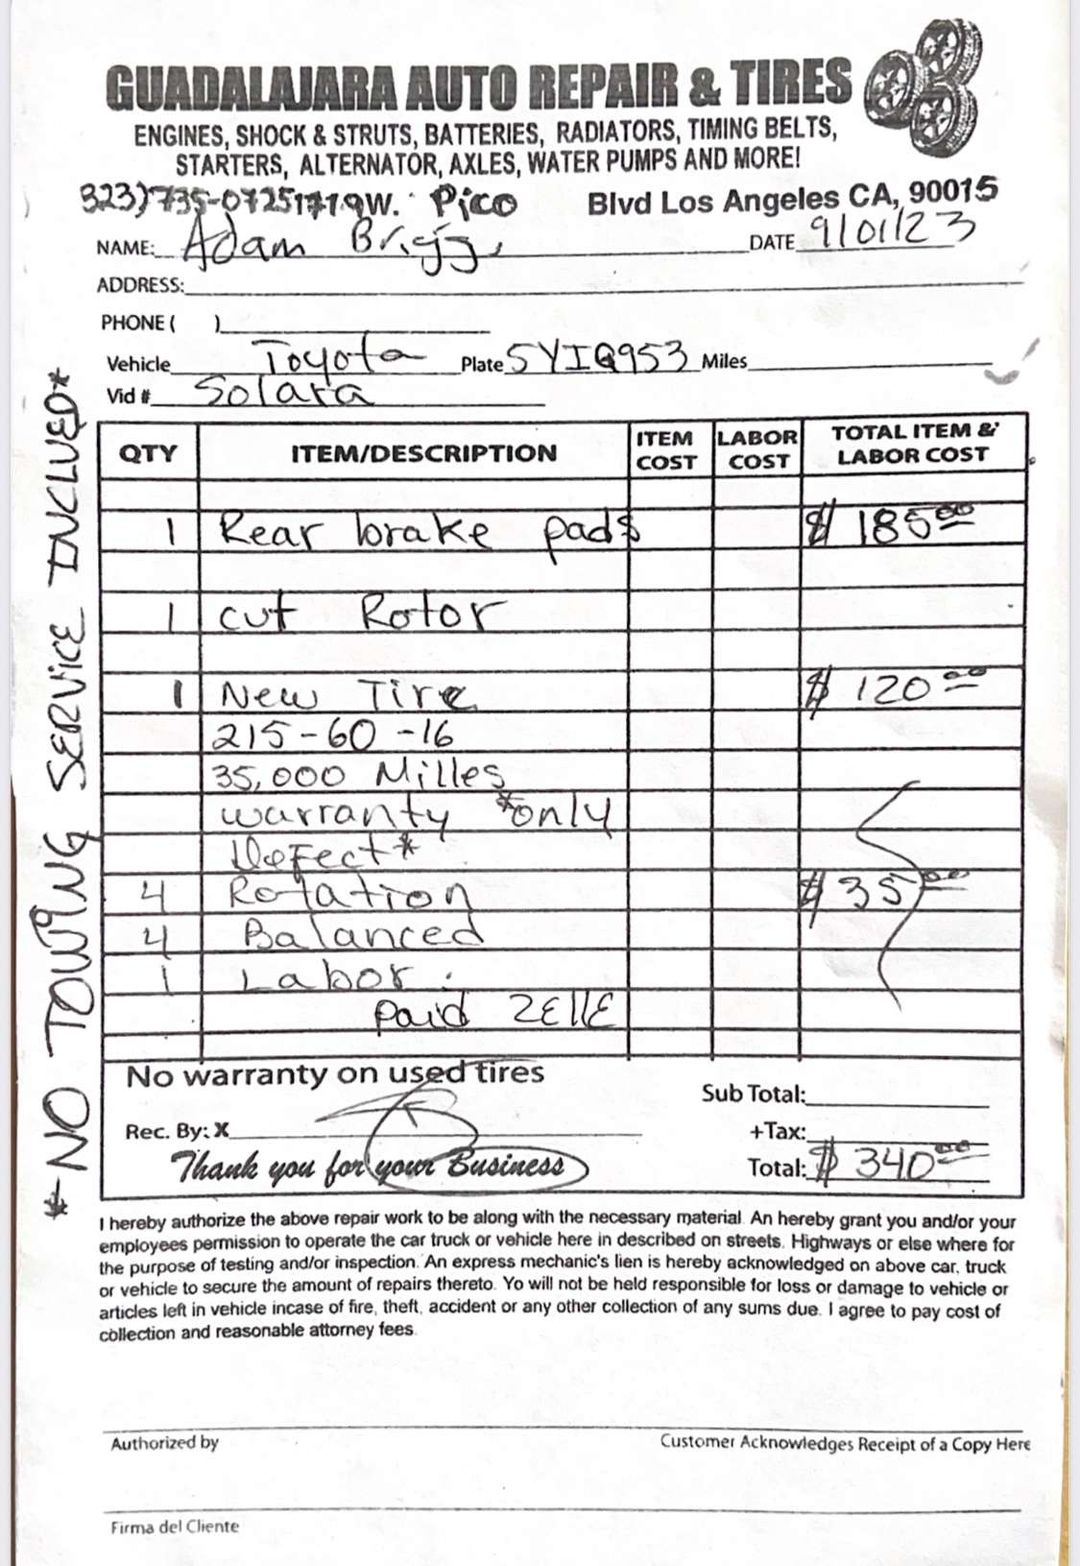 GUADALAJARA AUTO REPAIR & TIRES
ENGINES, SHOCK & STRUTS, BATTERIES, RADIATORS, TIMING BELTS,
STARTERS, ALTERNATOR, AXLES, WATER PUMPS AND MORE!
323)735-0725 1719W. Pico Blvd Los Angeles CA, 90015
NAME: Adam Briggs DATE 9/01/23
ADDRESS:
PHONE ( )
Vehicle Toyota Plate 5YIQ953 Miles
Vid # Solara
QTY ITEM/DESCRIPTION ITEM COST LABOR COST TOTAL ITEM & LABOR COST
1 Rear brake pads $ 185.00
1 cut Rotor
1 New Tire $ 120.00
215-60-16
35,000 Milles
warranty *only
Defect*
4 Rotation $ 35.00
4 Balanced
1 Labor.
paid ZEllE
No warranty on used tires
Sub Total:
Rec. By: X
+Tax:
Thank you for your Business
Total: $ 340.00
*NO TOWING SERVICE INCLUED*
I hereby authorize the above repair work to be along with the necessary material. An hereby grant you and/or your
employees permission to operate the car truck or vehicle here in described on streets. Highways or else where for
the purpose of testing and/or inspection. An express mechanic's lien is hereby acknowledged on above car, truck
or vehicle to secure the amount of repairs thereto. Yo will not be held responsible for loss or damage to vehicle or
articles left in vehicle incase of fire, theft, accident or any other collection of any sums due. I agree to pay cost of
collection and reasonable attorney fees.
Authorized by Customer Acknowledges Receipt of a Copy Here
Firma del Cliente